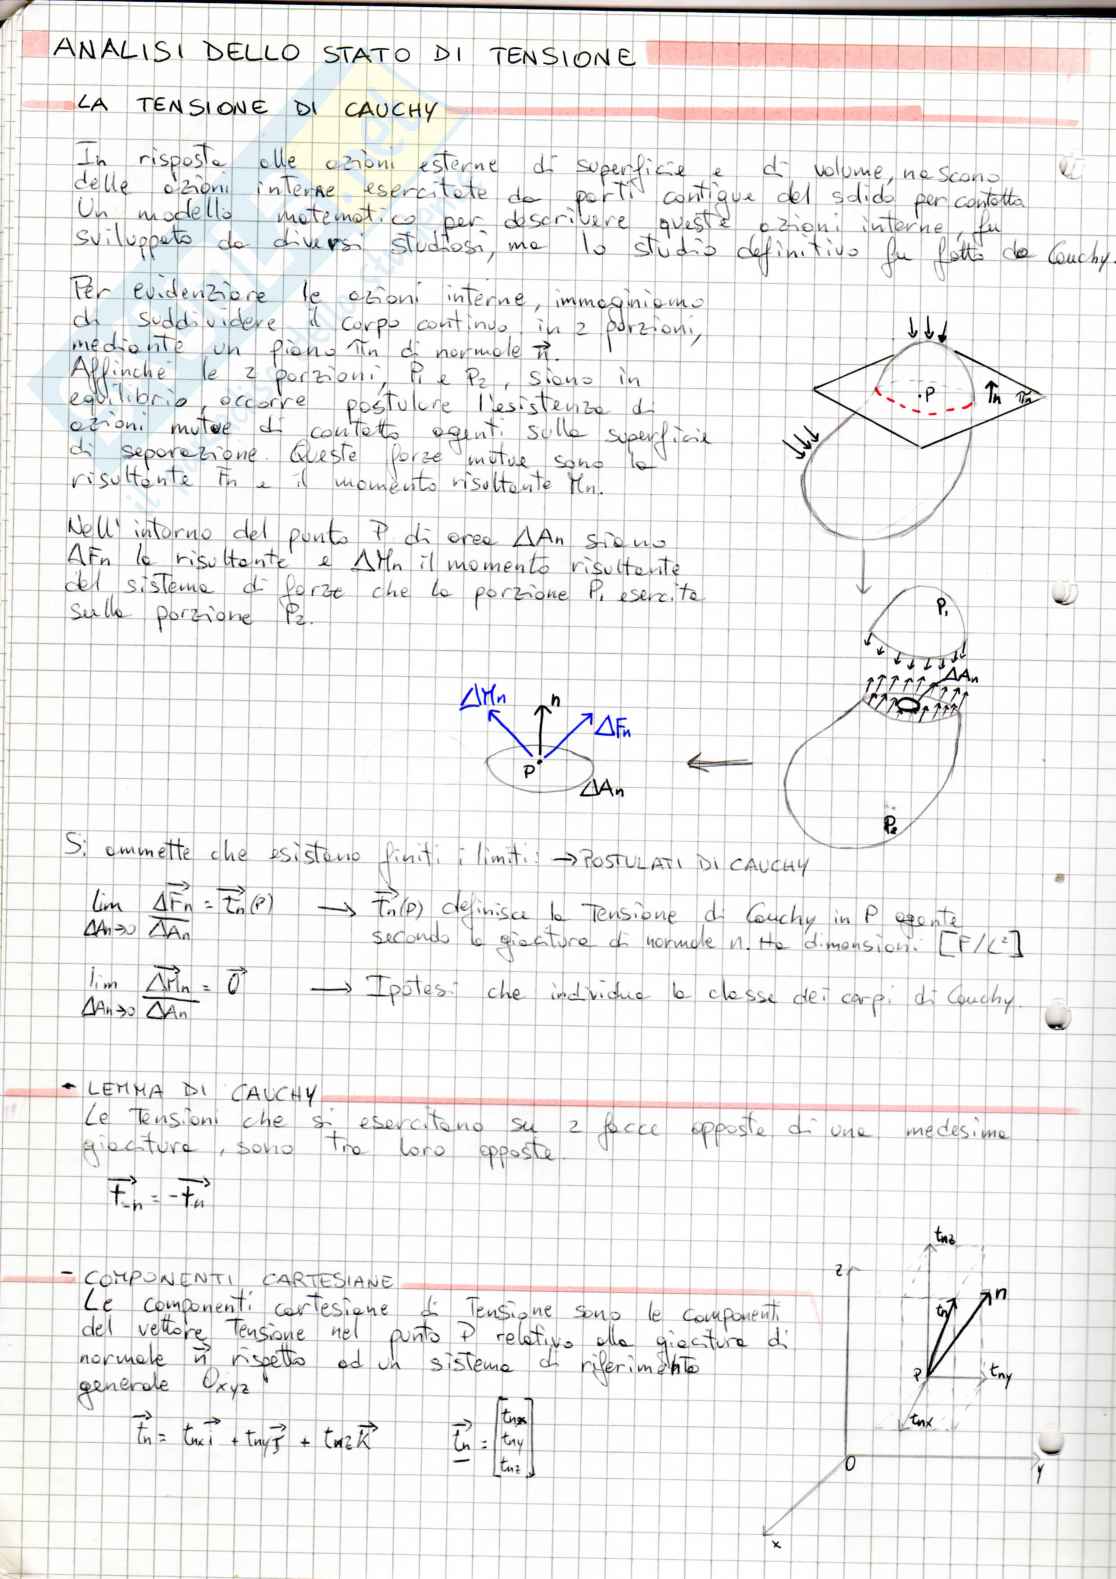 ANALISI DELLO STATO DI TENSIONE
LA TENSIONE DI CAUCHY
In risposta alle azioni esterne di superficie e di volume, nascono
delle azioni interne esercitate da parti contigue del solido per contatto
Un modello matematico per descrivere queste azioni interne, fu
sviluppato da diversi studiosi, ma lo studio definitivo fu fatto da Cauchy.
Per evidenziare le azioni interne, immaginiamo
di suddividere il corpo continuo in 2 porzioni,
mediante un piano πn di normale n⃗.
Affinché le 2 porzioni, P1 e P2, siano in
equilibrio, occorre postulare l'esistenza di
azioni mutue di contatto agenti sulla superficie
di separazione. Queste forze mutue sono la
risultante Fn e il momento risultante Mn.
Nell'intorno del punto P di area ΔAn siano
ΔFn la risultante e ΔMn il momento risultante
del sistema di forze che la porzione P1 esercita
sulla porzione P2.
P
n
πn
P1
ΔAn
P2
ΔMn
n
ΔFn
P
ΔAn
Si ammette che esistano finiti i limiti: → POSTULATI DI CAUCHY
lim ΔFn = tn(P) → tn(P) definisce la Tensione di Cauchy in P agente
ΔAn→0 ΔAn secondo la giacitura di normale n. Ha dimensioni [F/L²]
lim ΔMn = 0⃗ → Ipotesi che individua la classe dei corpi di Cauchy.
ΔAn→0 ΔAn
- LEMMA DI CAUCHY
Le Tensioni che si esercitano su 2 facce opposte di una medesima
giacitura, sono tra loro opposte.
t-n = -tn
- COMPONENTI CARTESIANE
Le componenti cartesiane di Tensione sono le componenti
del vettore Tensione nel punto P relativo alla giacitura di
normale n⃗ rispetto ad un sistema di riferimento
generale Oxyz
tn = tnx i + tny j + tnz k tn = [tnx
tny
tnz]
z
tnz
tn
n
P
tny
tnx
O
y
x